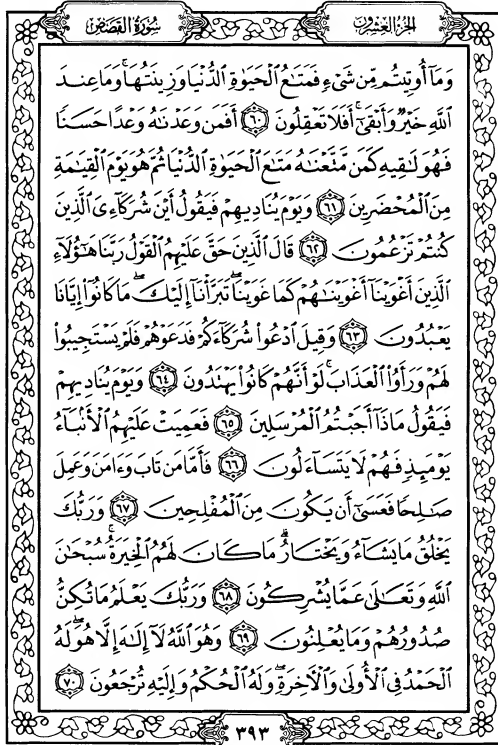 سُورَةُ القَصَصِ
الجُزءُ العِشرُونَ
وَمَآ أُوتِيتُم مِّن شَىْءٍ فَمَتَٰعُ ٱلْحَيَوٰةِ ٱلدُّنْيَا وَزِينَتُهَا ۚ وَمَا عِندَ
ٱللَّهِ خَيْرٌ وَأَبْقَىٰٓ ۚ أَفَلَا تَعْقِلُونَ ٦٠ أَفَمَن وَعَدْنَٰهُ وَعْدًا حَسَنًا
فَهُوَ لَٰقِيهِ كَمَن مَّتَّعْنَٰهُ مَتَٰعَ ٱلْحَيَوٰةِ ٱلدُّنْيَا ثُمَّ هُوَ يَوْمَ ٱلْقِيَٰمَةِ
مِنَ ٱلْمُحْضَرِينَ ٦١ وَيَوْمَ يُنَادِيهِمْ فَيَقُولُ أَيْنَ شُرَكَآءِىَ ٱلَّذِينَ
كُنتُمْ تَزْعُمُونَ ٦٢ قَالَ ٱلَّذِينَ حَقَّ عَلَيْهِمُ ٱلْقَوْلُ رَبَّنَا هَٰٓؤُلَآءِ
ٱلَّذِينَ أَغْوَيْنَآ أَغْوَيْنَٰهُمْ كَمَا غَوَيْنَا ۖ تَبَرَّأْنَآ إِلَيْكَ ۖ مَا كَانُوٓا۟ إِيَّانَا
يَعْبُدُونَ ٦٣ وَقِيلَ ٱدْعُوا۟ شُرَكَآءَكُمْ فَدَعَوْهُمْ فَلَمْ يَسْتَجِيبُوا۟
لَهُمْ وَرَأَوُا۟ ٱلْعَذَابَ ۚ لَوْ أَنَّهُمْ كَانُوا۟ يَهْتَدُونَ ٦٤ وَيَوْمَ يُنَادِيهِمْ
فَيَقُولُ مَاذَآ أَجَبْتُمُ ٱلْمُرْسَلِينَ ٦٥ فَعَمِيَتْ عَلَيْهِمُ ٱلْأَنۢبَآءُ
يَوْمَئِذٍ فَهُمْ لَا يَتَسَآءَلُونَ ٦٦ فَأَمَّا مَن تَابَ وَءَامَنَ وَعَمِلَ
صَٰلِحًا فَعَسَىٰٓ أَن يَكُونَ مِنَ ٱلْمُفْلِحِينَ ٦٧ وَرَبُّكَ
يَخْلُقُ مَا يَشَآءُ وَيَخْتَارُ ۗ مَا كَانَ لَهُمُ ٱلْخِيَرَةُ ۚ سُبْحَٰنَ
ٱللَّهِ وَتَعَٰلَىٰ عَمَّا يُشْرِكُونَ ٦٨ وَرَبُّكَ يَعْلَمُ مَا تُكِنُّ
صُدُورُهُمْ وَمَا يُعْلِنُونَ ٦٩ وَهُوَ ٱللَّهُ لَآ إِلَٰهَ إِلَّا هُوَ ۖ لَهُ
ٱلْحَمْدُ فِى ٱلْأُولَىٰ وَٱلْءَاخِرَةِ ۖ وَلَهُ ٱلْحُكْمُ وَإِلَيْهِ تُرْجَعُونَ ٧٠
٣٩٣